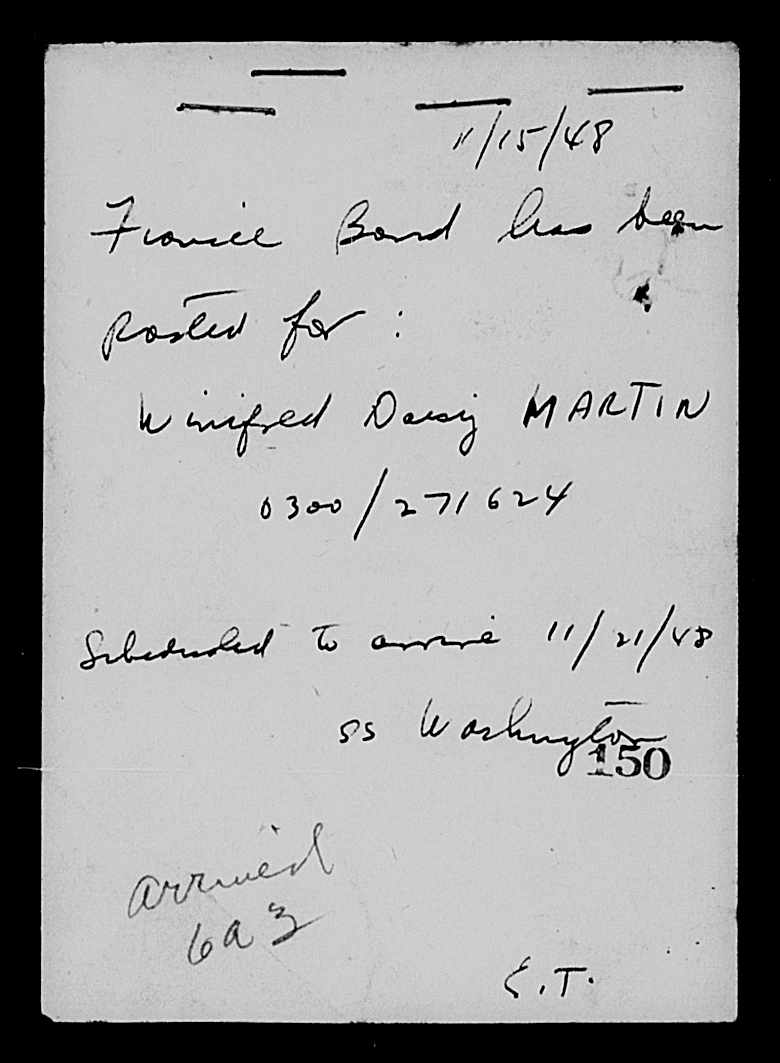 11/15/48
Fiancee Bond has been
posted for :
Winifred Daisy MARTIN
0300/271624
Scheduled to arrive 11/21/48
SS Washington
150
arrived
6a3
E.T.